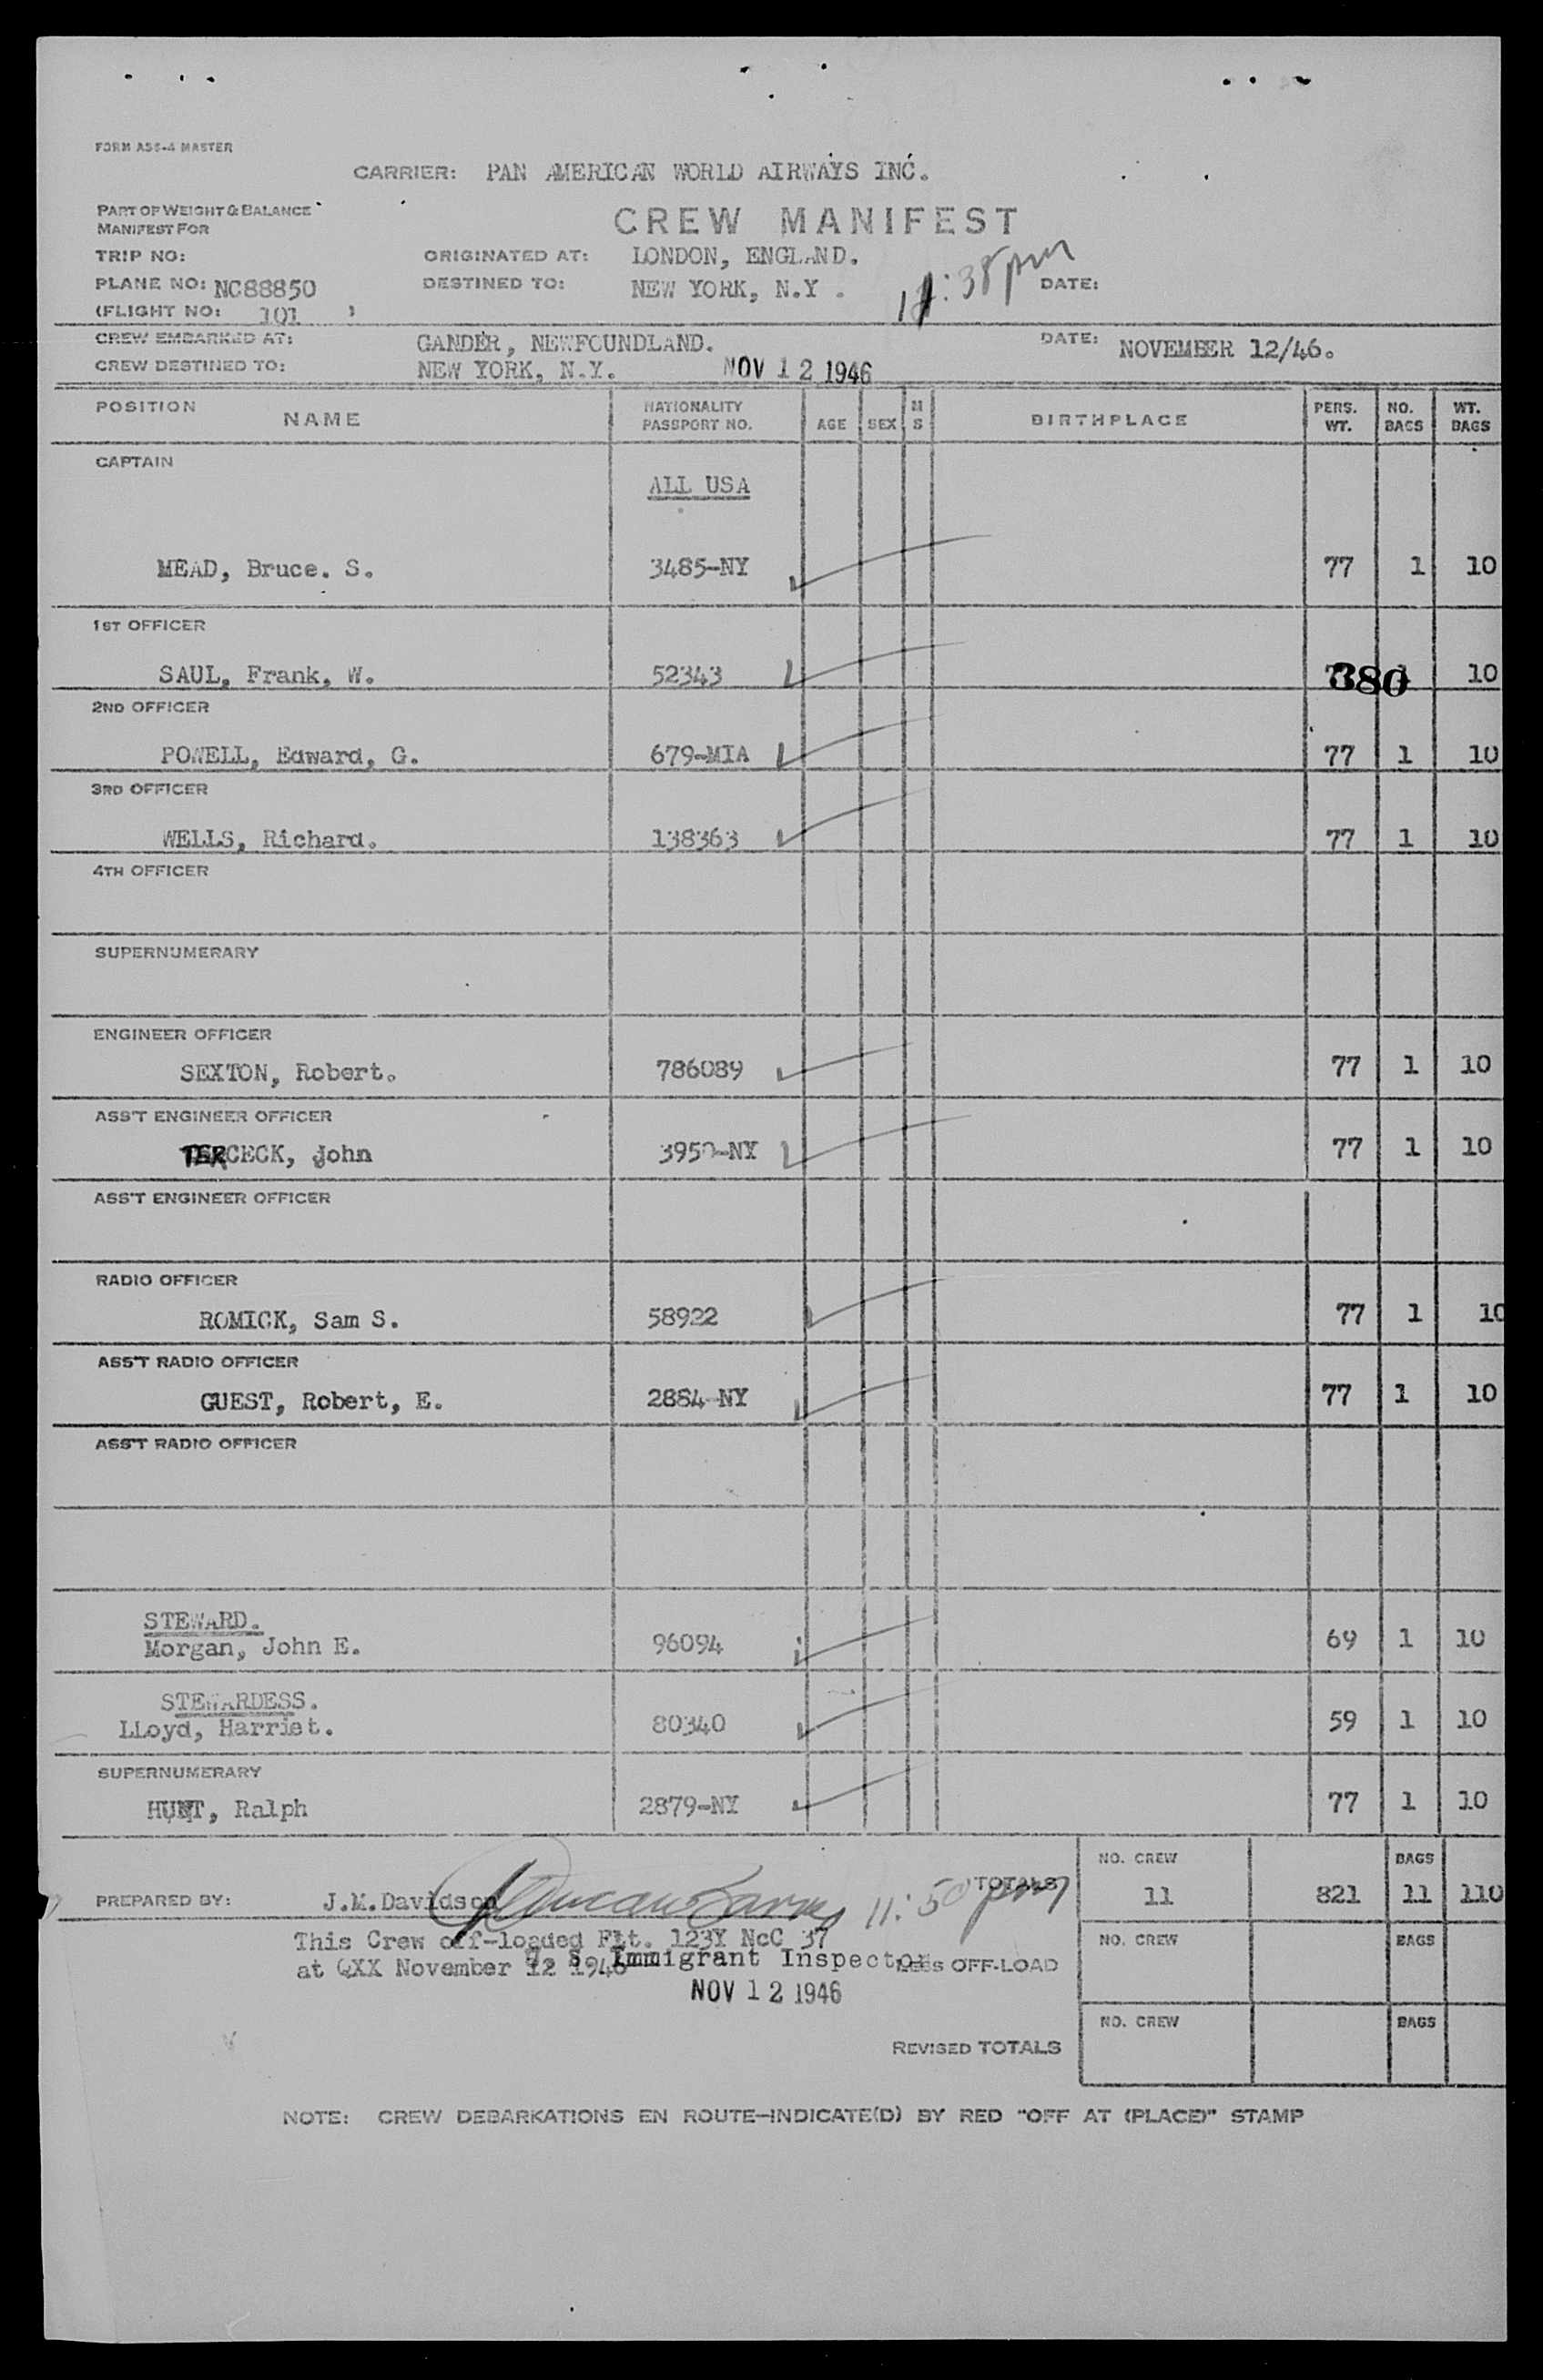 FORM ASS-4 MASTER
CARRIER: PAN AMERICAN WORLD AIRWAYS INC.
PART OF WEIGHT & BALANCE
MANIFEST FOR
CREW MANIFEST
TRIP NO: ORIGINATED AT: LONDON, ENGLAND.
PLANE NO: NC88850 DESTINED TO: NEW YORK, N.Y. :38 pm DATE:
(FLIGHT NO: 101 )
CREW EMBARKED AT: GANDER, NEWFOUNDLAND. DATE: NOVEMBER 12/46.
CREW DESTINED TO: NEW YORK, N.Y. NOV 12 1946
POSITION NAME NATIONALITY PASSPORT NO. AGE SEX M S BIRTHPLACE PERS. WT. NO. BAGS WT. BAGS
CAPTAIN
ALL USA
MEAD, Bruce. S. 3485-NY 77 1 10
1ST OFFICER
SAUL, Frank, W. 52343 380 10
2ND OFFICER
POWELL, Edward, G. 679-MIA 77 1 10
3RD OFFICER
WELLS, Richard. 138363 77 1 10
4TH OFFICER
SUPERNUMERARY
ENGINEER OFFICER
SEXTON, Robert. 786089 77 1 10
ASS'T ENGINEER OFFICER
TERCECK, John 3950-NY 77 1 10
ASS'T ENGINEER OFFICER
RADIO OFFICER
ROMICK, Sam S. 58922 77 1 10
ASS'T RADIO OFFICER
GUEST, Robert, E. 2884-NY 77 1 10
ASS'T RADIO OFFICER
STEWARD.
Morgan, John E. 96094 69 1 10
STEWARDESS.
LLoyd, Harriet. 80340 59 1 10
SUPERNUMERARY
HUNT, Ralph 2879-NY 77 1 10
NO. CREW BAGS
PREPARED BY: J.M.Davidson 11:50 pm TOTALS 11 821 11 110
This Crew off-loaded Flt. 123Y NcC 37
NO. CREW BAGS
at QXX November 12 1946 U. S. Immigrant Inspector LESS OFF-LOAD
NOV 12 1946
NO. CREW BAGS
REVISED TOTALS
NOTE: CREW DEBARKATIONS EN ROUTE—INDICATE(D) BY RED "OFF AT (PLACE)" STAMP